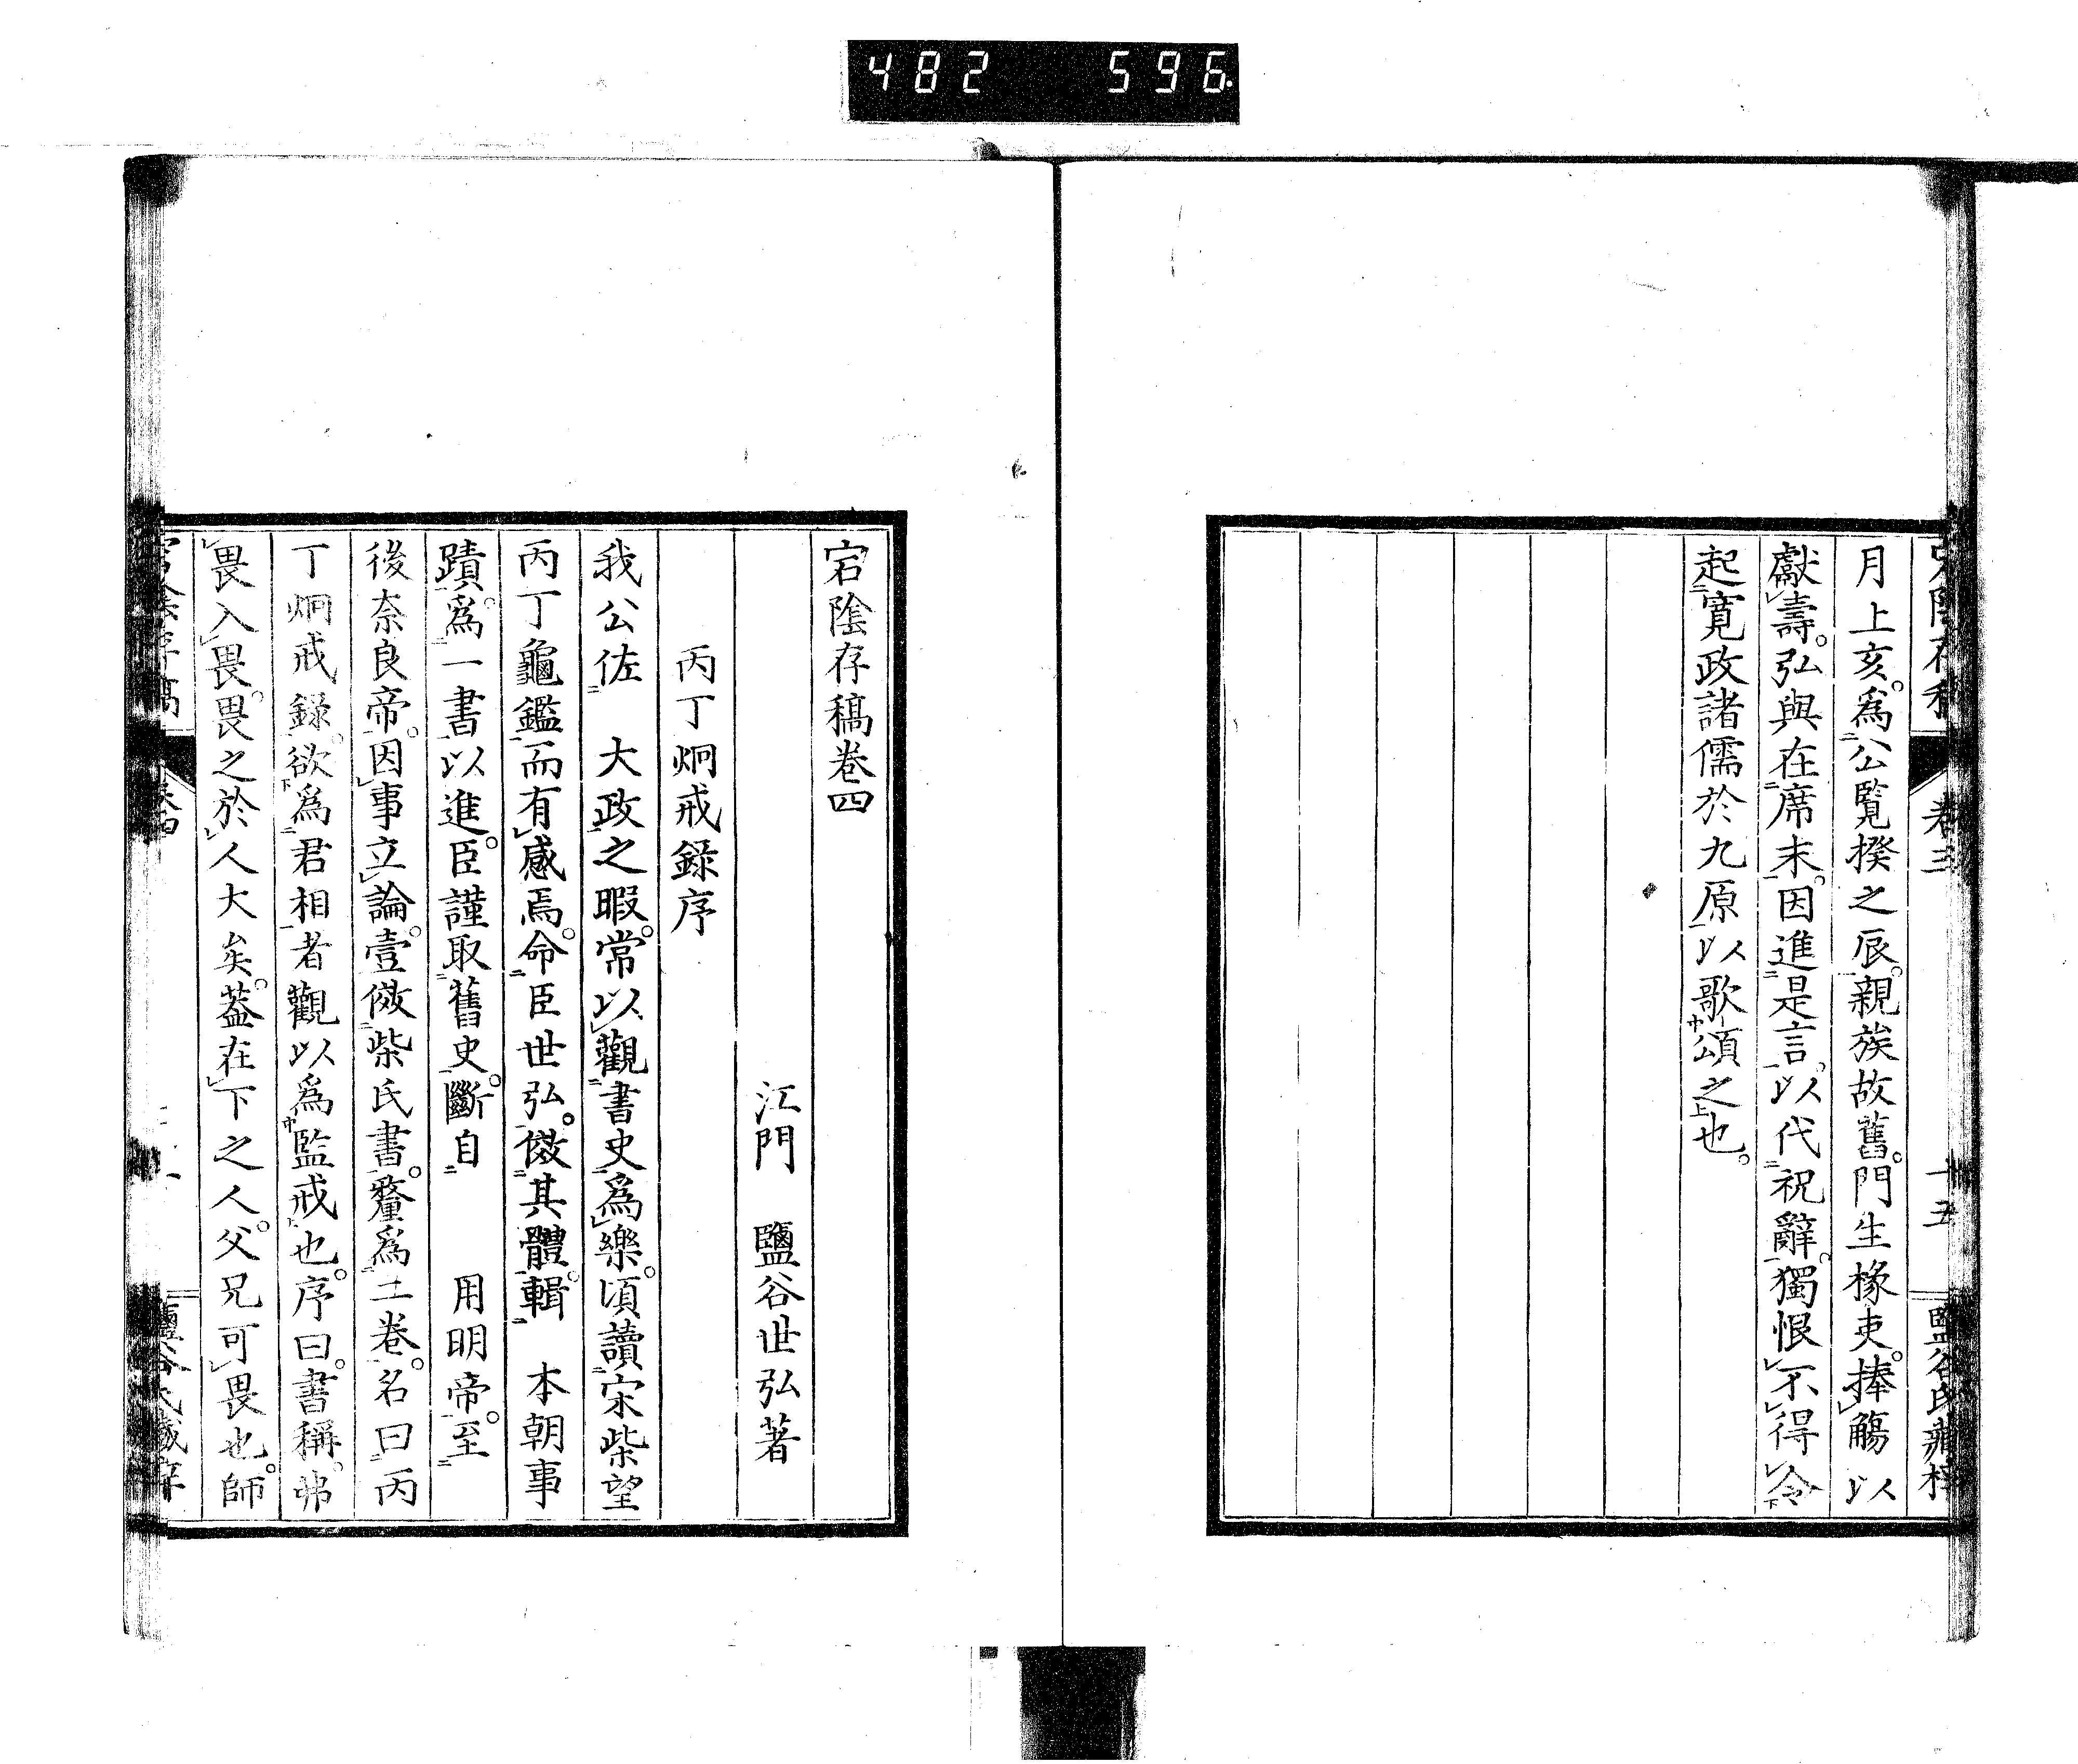 482 596
宕陰存稿 卷三 十五 鹽谷氏藏梓
月上亥。爲公覽揆之辰。親族故舊。門生椽吏。捧觴以
獻壽。弘與在席末。因進是言。以代祝辭。獨恨不得令
起寛政諸儒於九原以歌頌之也。
宕陰存稿卷四
江門 鹽谷世弘著
丙丁炯戒錄序
我公佐 大政之暇。常以觀書史爲樂。頃讀宋柴望
丙丁龜鑑而有感焉。命臣世弘。傚其體。輯 本朝事
蹟。爲一書以進。臣謹取舊史。斷自 用明帝。至
後奈良帝。因事立論。壹傚柴氏書。釐爲二卷。名曰丙
丁炯戒錄。欲爲君相者觀以爲監戒也。序曰。書稱。弗
畏入畏。畏之於人大矣。葢在下之人。父兄可畏也。師
宕陰存稿 卷四 鹽谷氏藏梓